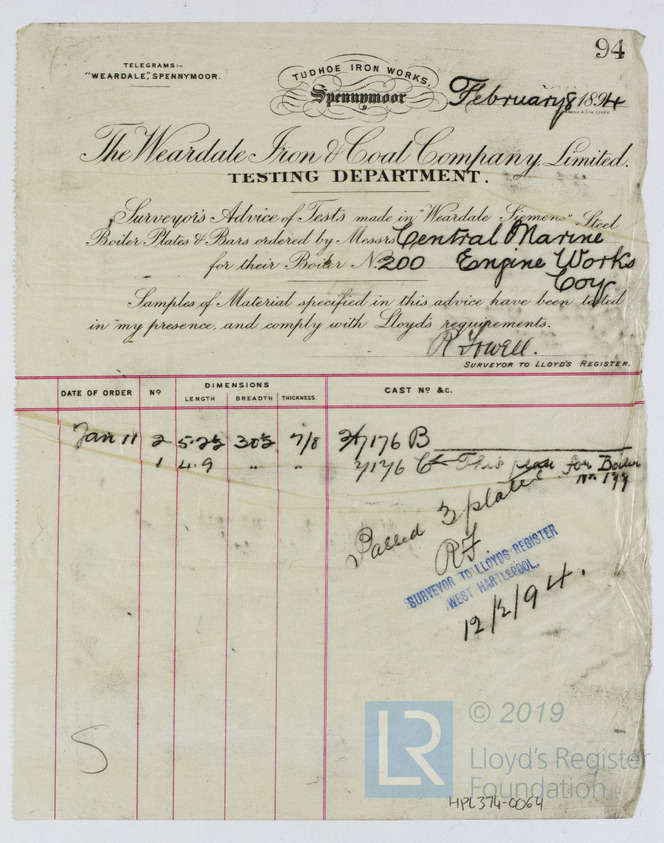 94
TELEGRAMS:-
"WEARDALE," SPENNYMOOR.
TUDHOE IRON WORKS,
Spennymoor
February 8 1894
The Weardale Iron & Coal Company, Limited.
TESTING DEPARTMENT.
Surveyor's Advice of Tests made in "Weardale Siemens" Steel
Boiler Plates & Bars ordered by Messrs Central Marine
for their Boiler No. 200 Engine Works
Coy
Samples of Material specified in this advice have been tested
in my presence, and comply with Lloyd's requirements.
R Fowell.
SURVEYOR TO LLOYD'S REGISTER.
DATE OF ORDER No DIMENSIONS CAST No &c.
LENGTH BREADTH THICKNESS.
Jan 11 2 7/8 7176 B
1 4.9 " " 7176 C This plate for Boiler
No. 199
Passed 3 plates
RF.
SURVEYOR TO LLOYDS REGISTER
WEST HARTLEPOOL.
12/2/94.
© 2019
LR Lloyd's Register
Foundation
HPL374-0064